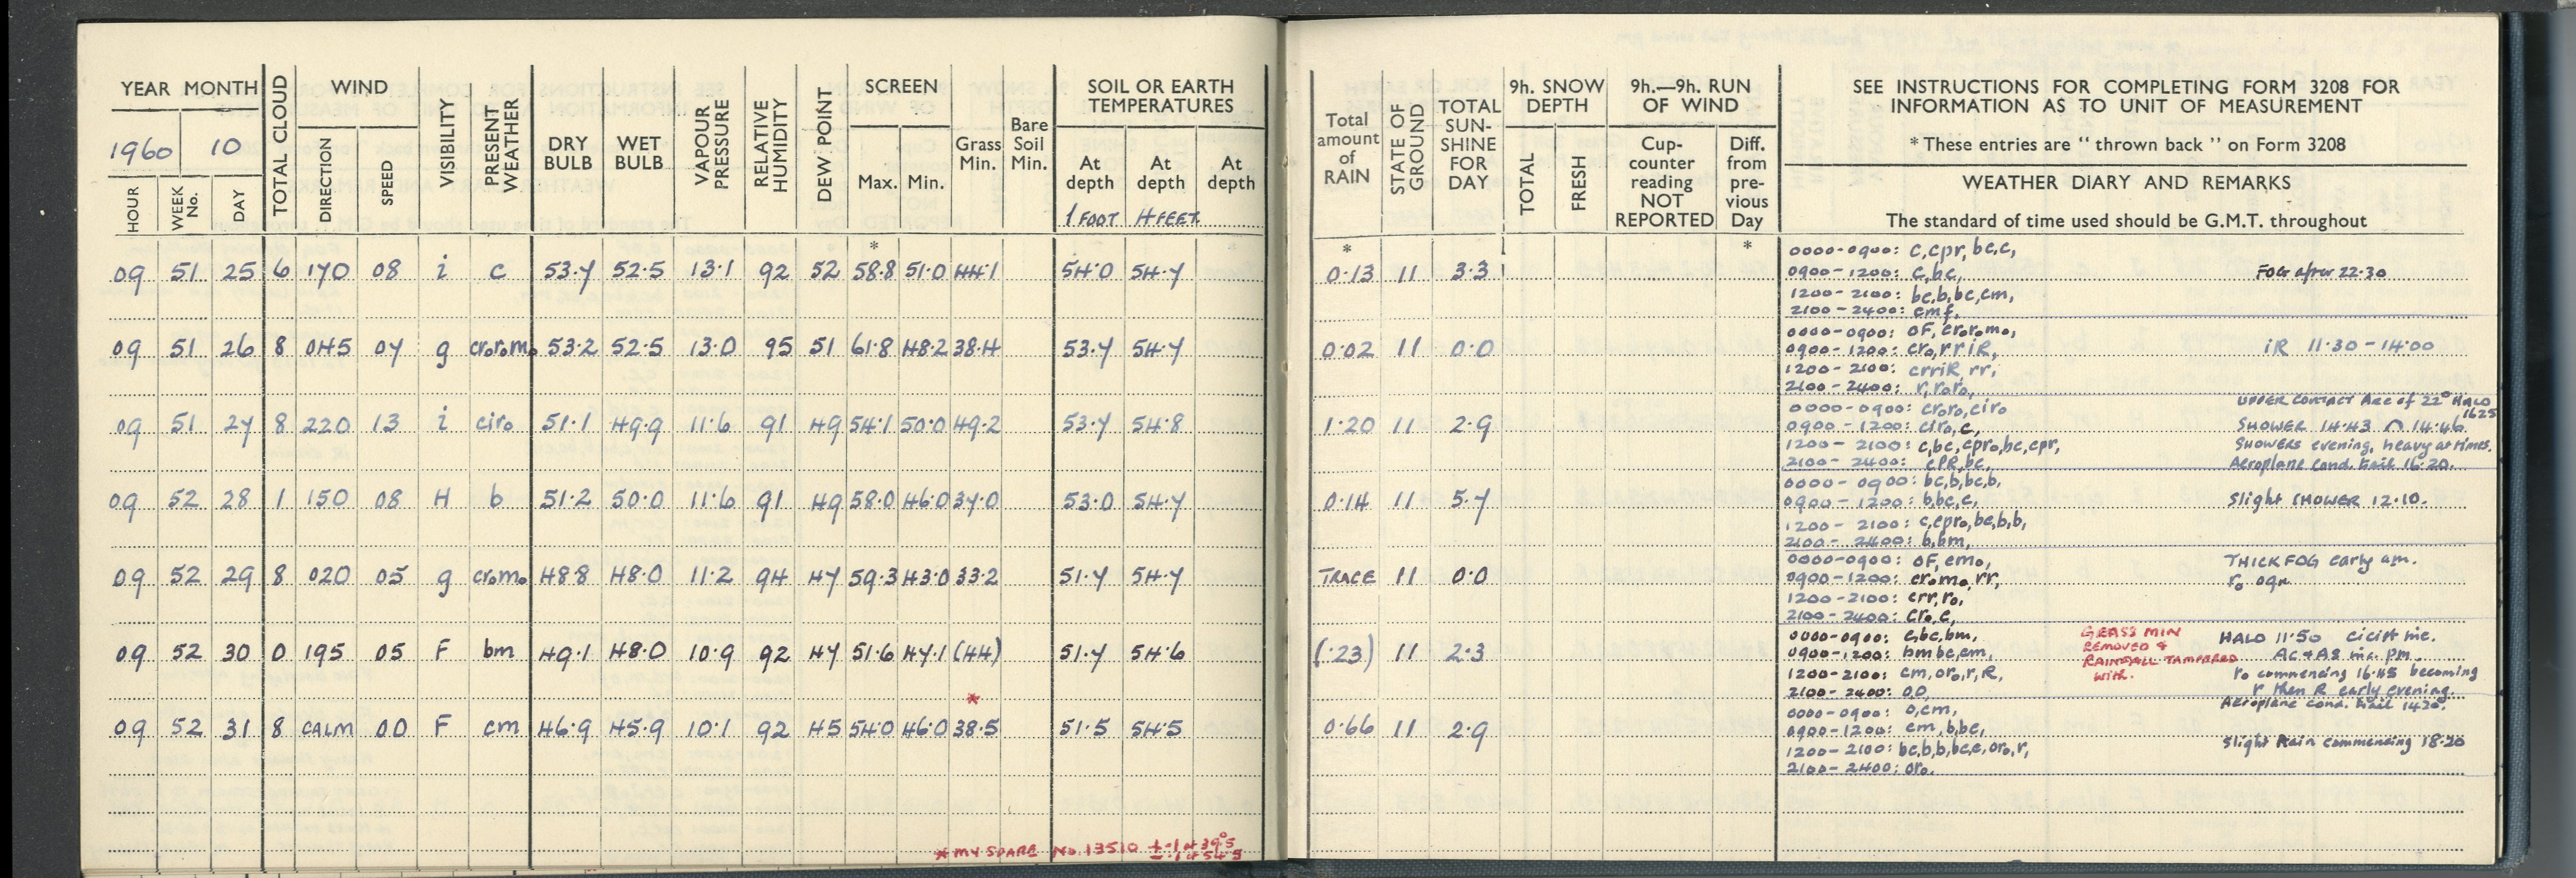 YEAR MONTH
1960 10
HOUR WEEK No. DAY TOTAL CLOUD WIND DIRECTION SPEED VISIBILITY PRESENT WEATHER DRY BULB WET BULB VAPOUR PRESSURE RELATIVE HUMIDITY DEW POINT SCREEN Max. Min. Grass Min. Bare Soil Min. SOIL OR EARTH TEMPERATURES At depth 1 FOOT At depth 4 FEET At depth
*
09 51 25 6 170 08 i c 53.7 52.5 13.1 92 52 58.8 51.0 44.1 54.0 54.7
09 51 26 8 045 07 g cr₀r₀m₀ 53.2 52.5 13.0 95 51 61.8 48.2 38.4 53.7 54.7
09 51 27 8 220 13 i cir₀ 51.1 49.9 11.6 91 49 54.1 50.0 49.2 53.7 54.8
09 52 28 1 150 08 H b 51.2 50.0 11.6 91 49 58.0 46.0 37.0 53.0 54.7
09 52 29 8 020 05 g cr₀m₀ 48.8 48.0 11.2 94 47 59.3 43.0 33.2 51.7 54.7
09 52 30 0 195 05 F bm 49.1 48.0 10.9 92 47 51.6 47.1 (44) 51.7 54.6
*
09 52 31 8 CALM 00 F cm 46.9 45.9 10.1 92 45 54.0 46.0 38.5 51.5 54.5
* MY SPARE No. 13510 +.1 at 39°5
-.1 at 54.5
Total amount of RAIN STATE OF GROUND TOTAL SUN-SHINE FOR DAY 9h. SNOW DEPTH TOTAL FRESH 9h.—9h. RUN OF WIND Cup-counter reading NOT REPORTED Diff. from pre-vious Day
SEE INSTRUCTIONS FOR COMPLETING FORM 3208 FOR
INFORMATION AS TO UNIT OF MEASUREMENT
* These entries are "thrown back" on Form 3208
WEATHER DIARY AND REMARKS
The standard of time used should be G.M.T. throughout
* *
0000-0900: c,cpr,bc,c,
0.13 11 3.3 0900-1200: c,bc, FOG after 22.30
1200-2100: bc,b,bc,cm,
2100-2400: cmf,
0000-0900: oF, cr₀r₀m₀,
0.02 11 0.0 0900-1200: cr₀,rriR, iR 11.30-14.00
1200-2100: crriR, rr,
2100-2400: r,r₀r₀,
UPPER CONTACT Arc of 22° HALO 1625
0000-0900: cr₀r₀,cir₀
1.20 11 2.9 0900-1200: cir₀,c, SHOWER 14.43 ⌒ 14.46
1200-2100: c,bc,cpr₀,bc,cpr, SHOWERS evening, heavy at times.
2100-2400: cPR,bc, Aeroplane cond. trail 16.20.
0000-0900: bc,b,bc,b,
0.14 11 5.7 0900-1200: b,bc,c, Slight SHOWER 12.10.
1200-2100: c,cpr₀,bc,b,b,
2100-2400: b,bm,
0000-0900: oF, cm₀, THICK FOG early am.
TRACE 11 0.0 0900-1200: cr₀m₀,rr, r₀ 09h
1200-2100: crr,r₀,
2100-2400: cr₀,c,
0000-0900: c,bc,bm, GRASS MIN HALO 11.50
(.23) 11 2.3 0900-1200: bmbc,cm, REMOVED & RAINFALL TAMPERED with. AC & AS inc. pm
1200-2100: cm,or₀,r,R, r₀ commencing 16.45 becoming
2100-2400: O,O, r then R early evening.
Aeroplane cond. trail 1420.
0000-0900: o,cm,
0.66 11 2.9 0900-1200: cm,b,bc,
1200-2100: bc,b,b,bc,c,or₀,r, Slight Rain commencing 18.20
2100-2400: or₀.